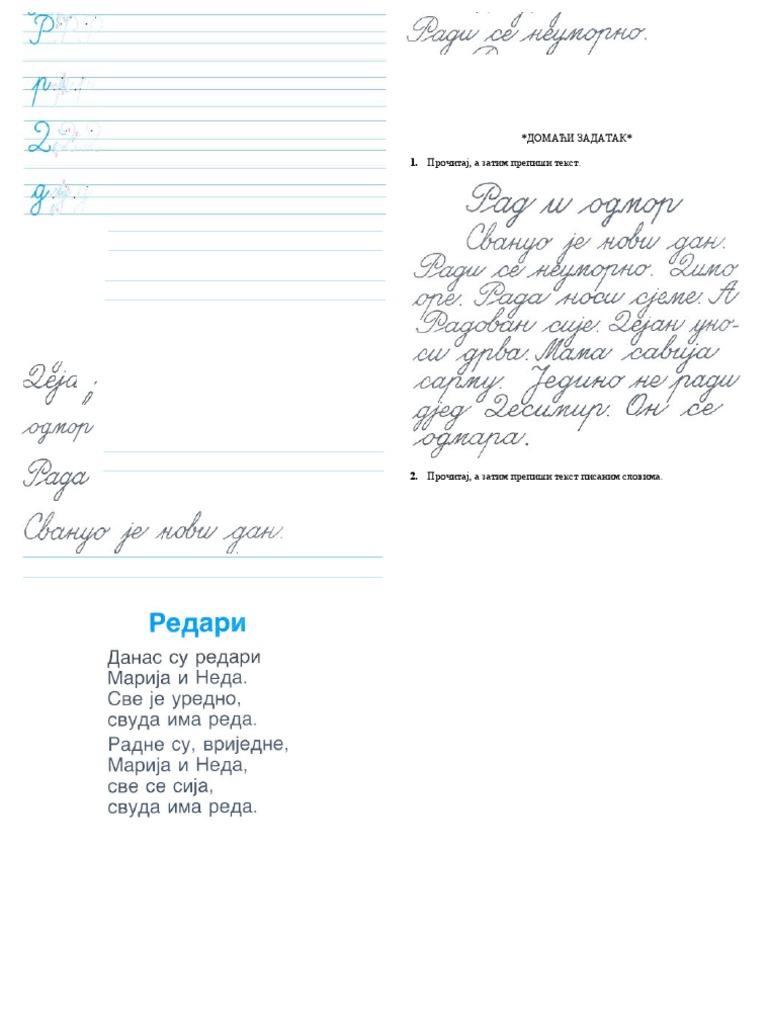 Р
р
Д
д
Деја
одмор
Рада
Свануо је нови дан.
Редари
Данас су редари
Марија и Неда.
Све је уредно,
свуда има реда.
Радне су, вриједне,
Марија и Неда,
све се сија,
свуда има реда.
Ради се неуморно.
*ДОМАЋИ ЗАДАТАК*
1. Прочитај, а затим препиши текст.
Рад и одмор
Свануо је нови дан.
Ради се неуморно. Димо
оре. Рада носи сјеме. А
Радован сије. Дејан уно-
си дрва. Мама савија
сарму. Једино не ради
дјед Десимир. Он се
одмара.
2. Прочитај, а затим препиши текст писаним словима.